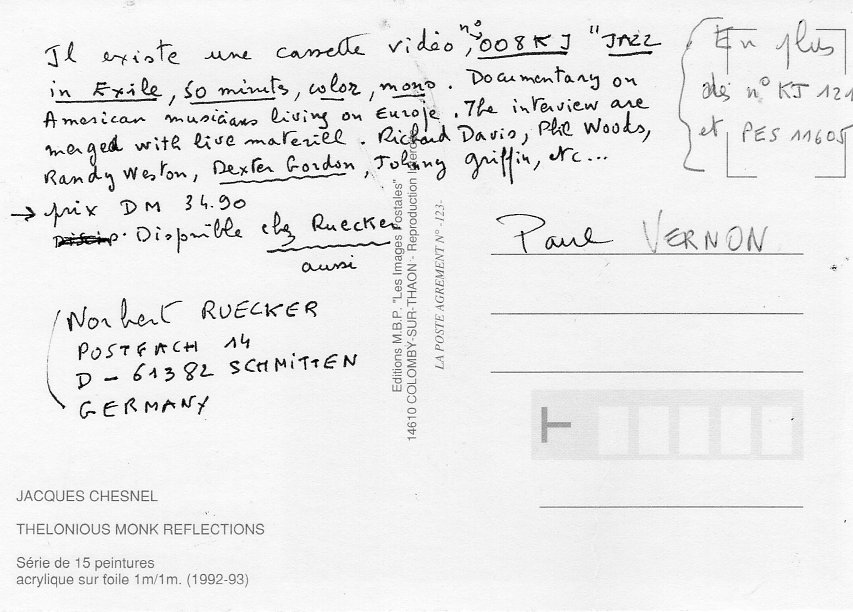 Il existe une cassette vidéo, n° 008KJ "JAZZ
in Exile, 50 minuts, color, mono. Documentary on
American musicians living on Europe. The interview are
merged with live materiel. Richard Davis, Phil Woods,
Randy Weston, Dexter Gordon, Johnny griffin, etc...
→ prix DM 34.90
Disponible chez Ruecker
aussi
Norbert RUECKER
POSTFACH 14
D - 61382 SCHMITTEN
GERMANY
En plus
des n° KJ 121
et PES 11605
Paul VERNON
Editions M.B.P. "Les Images Postales"
14610 COLOMBY-SUR-THAON - Reproduction
LA POSTE AGREMENT N° -123-
T
JACQUES CHESNEL
THELONIOUS MONK REFLECTIONS
Série de 15 peintures
acrylique sur foile 1m/1m. (1992-93)